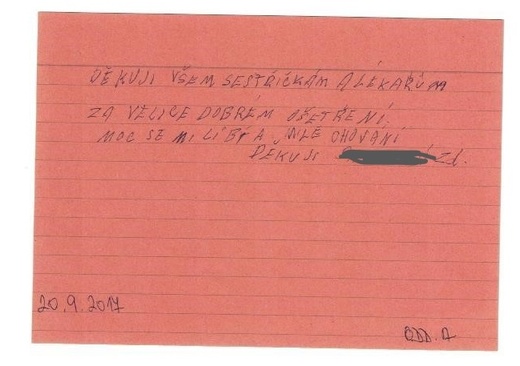 DĚKUJI VŠEM SESTŘIČKÁM A LÉKAŘŮM
ZA VELICE DOBRÉM OŠETŘENÍ.
MOC SE MI LÍBÍ A MILÉ CHOVÁNÍ
DĚKUJI Zd.
20.9.2017
ODD. A